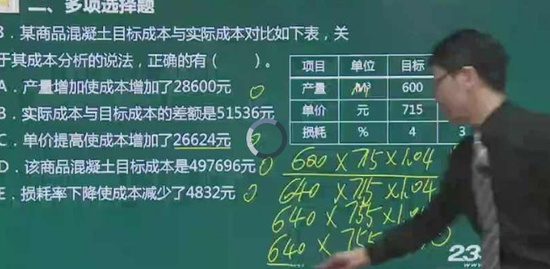 二、多项选择题
3．某商品混凝土目标成本与实际成本对比如下表，关
于其成本分析的说法，正确的有（　　）。
A．产量增加使成本增加了28600元
B．实际成本与目标成本的差额是51536元
C．单价提高使成本增加了26624元
D．该商品混凝土目标成本是497696元
E．损耗率下降使成本减少了4832元
项目 单位 目标
产量 M³ 600
单价 元 715
损耗 % 4 3
600×715×1.04
640×715×1.04
640×755×1.0
640×755